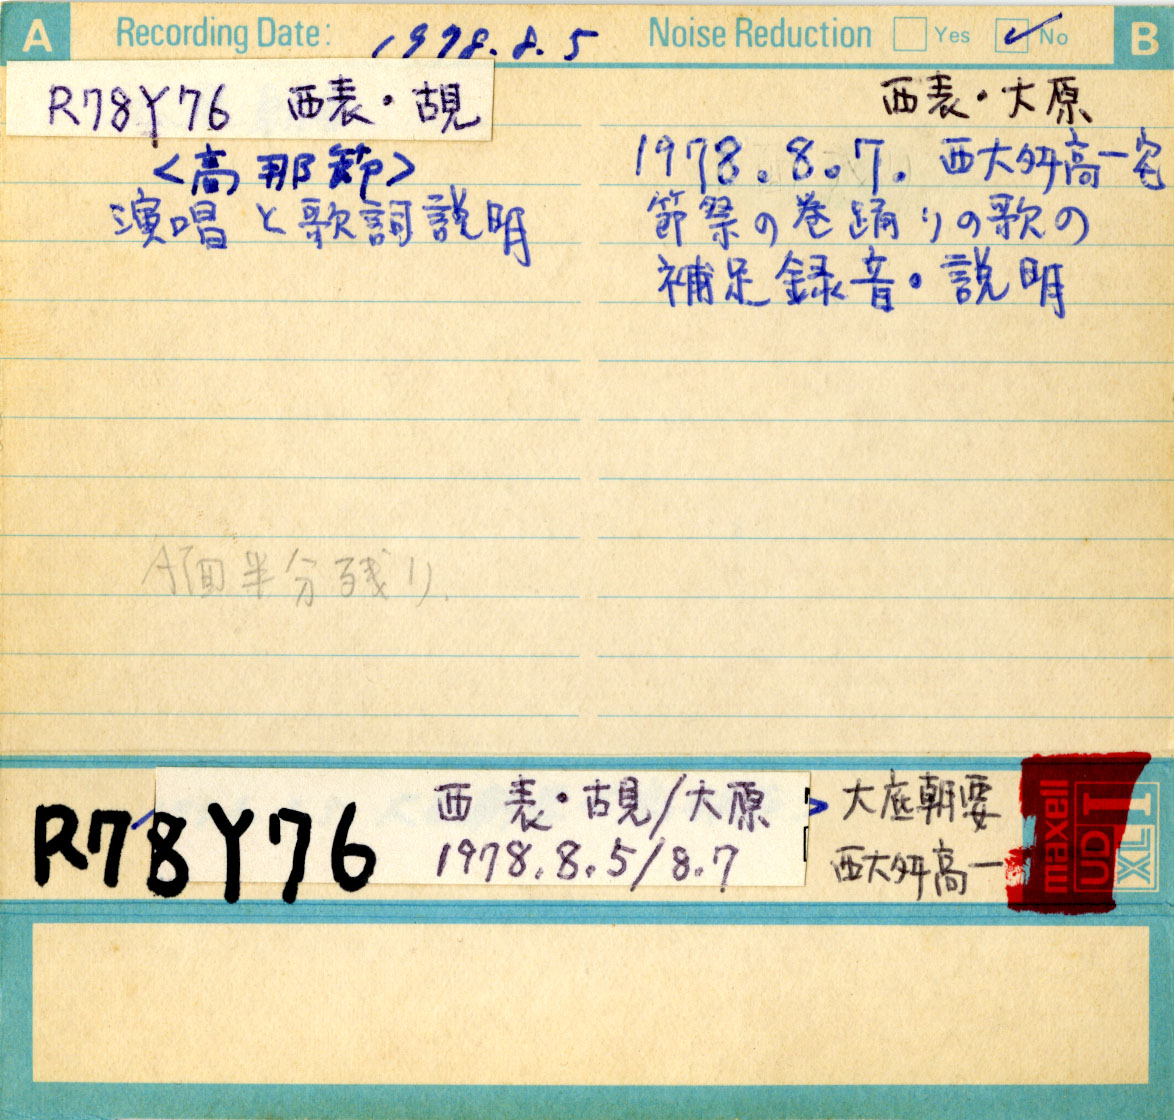 A Recording Date: 1978.8.5 Noise Reduction Yes No B
R78Y76 西表・古見
<高那節>
演唱と歌詞説明
A面半分残り.
西表・大原
1978.8.7. 西大舛高一宅
節祭の巻踊りの歌の
補足録音・説明
R78Y76
西表・古見/大原
1978.8.5/8.7
大底朝要
西大舛高一
maxell
UD
XLI